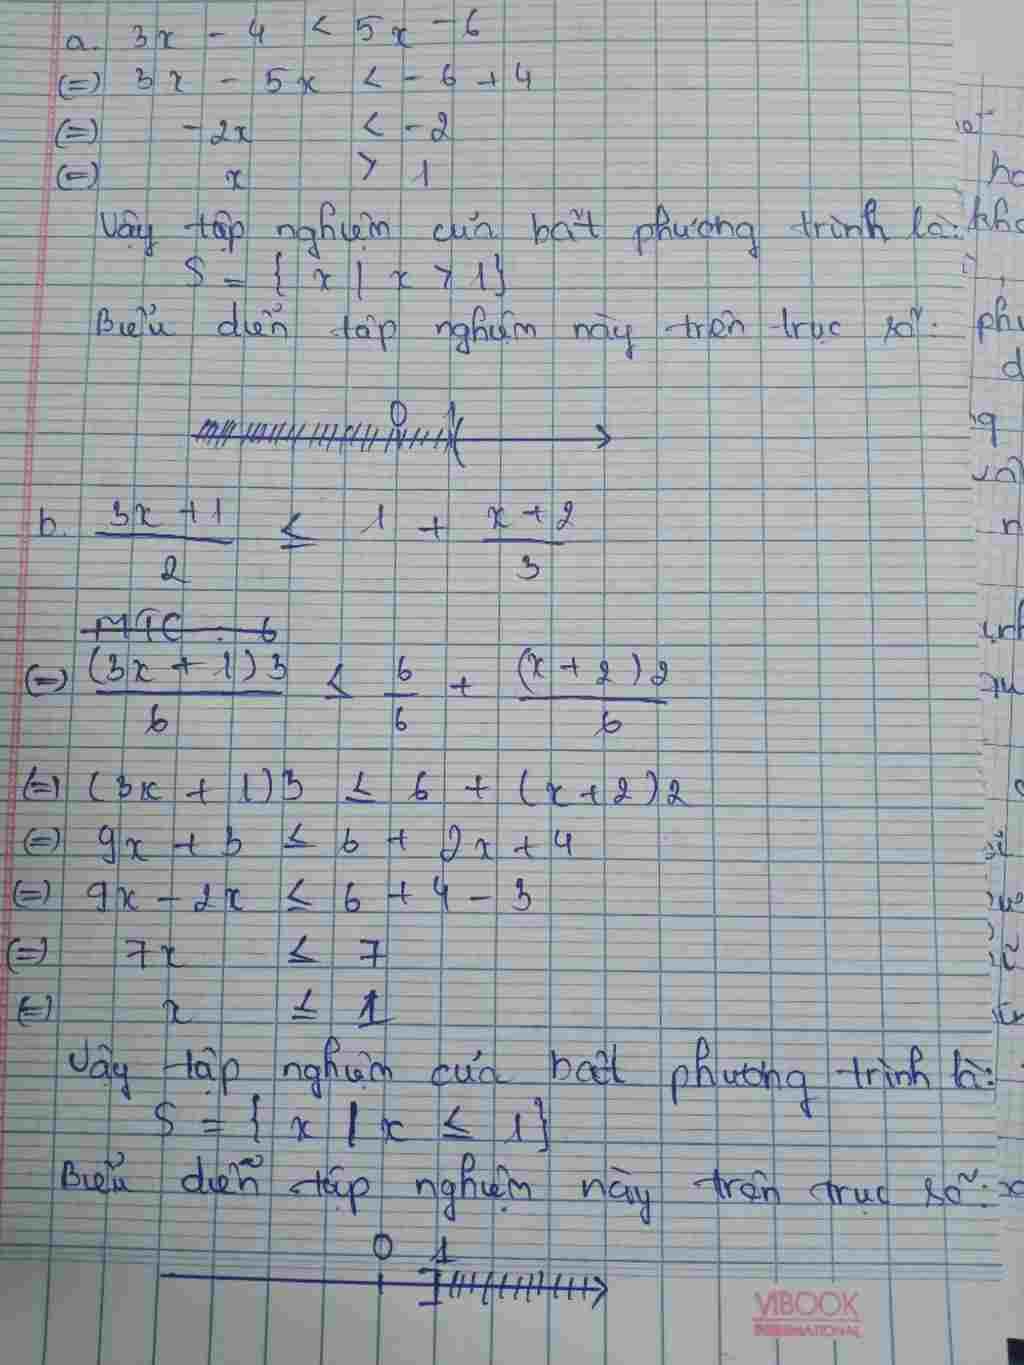 a. 3x - 4 < 5x - 6
(=) 3x - 5x < - 6 + 4
(=) - 2x < - 2
(=) x > 1
Vậy tập nghiệm của bất phương trình là:
S = { x | x > 1}
Biểu diễn tập nghiệm này trên trục số:
0 1
b. 3x + 1 / 2 ≤ 1 + x + 2 / 3
MTC : 6
(=) (3x + 1)3 / 6 ≤ 6 / 6 + (x + 2)2 / 6
(=) (3x + 1)3 ≤ 6 + (x + 2)2
(=) 9x + 3 ≤ 6 + 2x + 4
(=) 9x - 2x ≤ 6 + 4 - 3
(=) 7x ≤ 7
(=) x ≤ 1
Vậy tập nghiệm của bất phương trình là:
S = { x | x ≤ 1}
Biểu diễn tập nghiệm này trên trục số:
0 1
VIBOOK
INTERNATIONAL